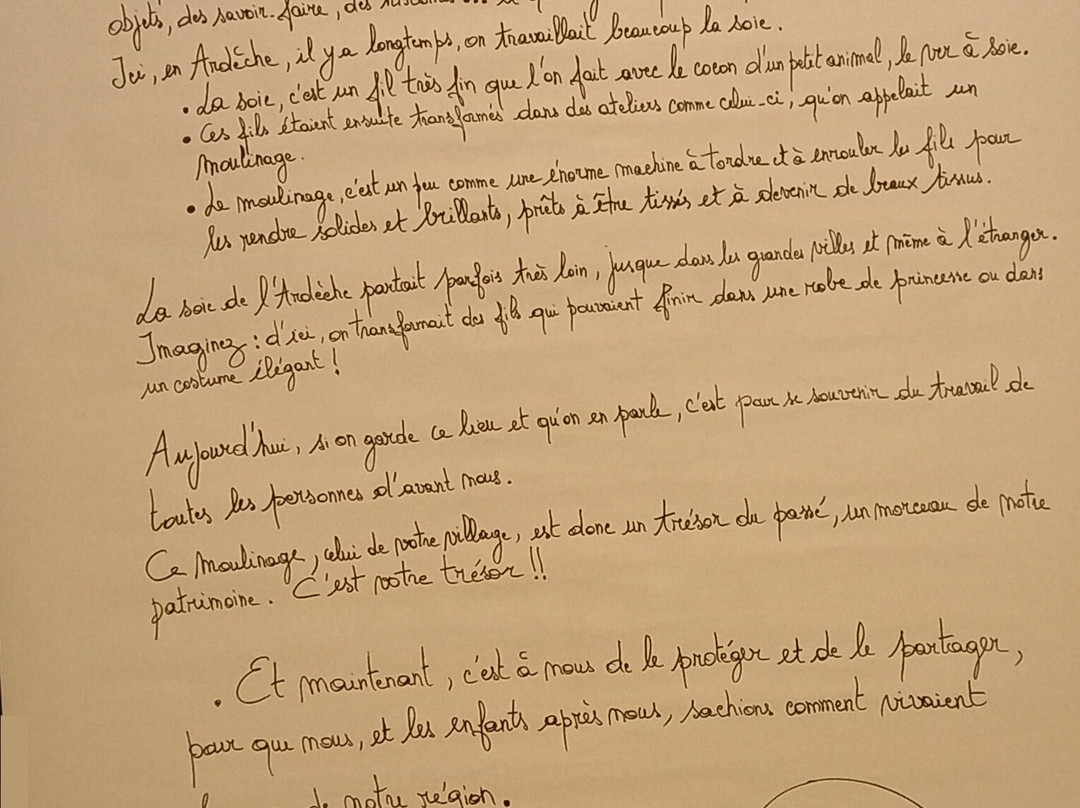 objets, des savoir-faire, des
Ici, en Ardèche, il y a longtemps, on travaillait beaucoup la soie.
• La soie, c'est un fil très fin que l'on fait avec le cocon d'un petit animal, le ver à soie.
• Ces fils étaient ensuite transformés dans des ateliers comme celui-ci, qu'on appelait un
moulinage.
• Le moulinage, c'est un peu comme une énorme machine à tordre et à enrouler les fils pour
les rendre solides et brillants, prêts à être tissés et à devenir de beaux tissus.
La soie de l'Ardèche partait parfois très loin, jusque dans les grandes villes et même à l'étranger.
Imaginez : d'ici, on transformait des fils qui pouvaient finir dans une robe de princesse ou dans
un costume élégant !
Aujourd'hui, si on garde ce lieu et qu'on en parle, c'est pour se souvenir du travail de
toutes les personnes d'avant nous.
Ce moulinage, celui de votre village, est donc un trésor du passé, un morceau de notre
patrimoine. C'est votre trésor !!
• Et maintenant, c'est à nous de le protéger et de le partager,
pour que nous, et les enfants après nous, sachions comment vivaient
de notre région.